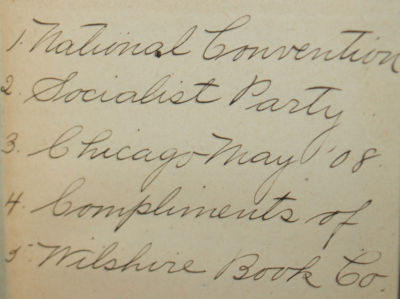 1. National Convention
2. Socialist Party
3. Chicago May '08.
4. Compliments of
5 Wilshire Book Co.